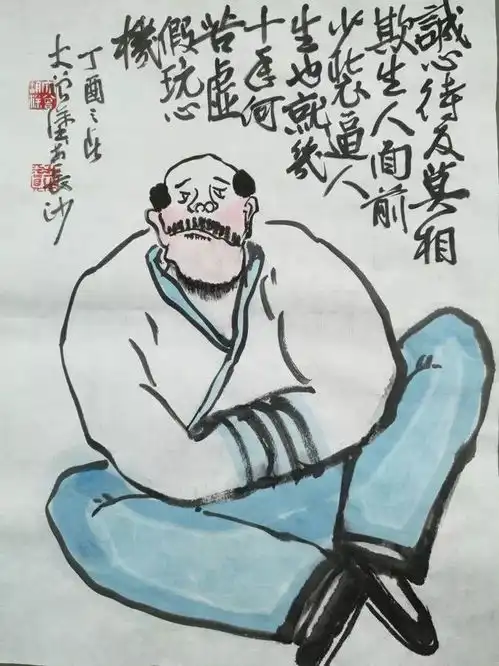 誠心待友莫相
欺生人面前
少裝逼人
生也就幾
十年何
苦虛
假玩心
機
丁酉之
長沙